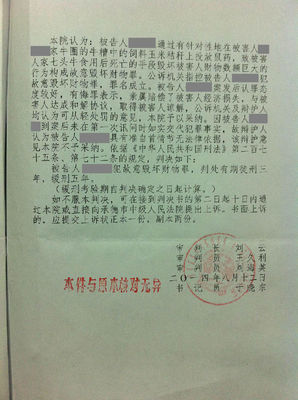 本院认为：被告人 通过有针对性地在被害人
家牛圈的牛槽中的饲料玉米秸秆上投放鼠药，致被害
人家七头牛食用后死亡的手段毁坏被害人财物数额巨大的
行为构成故意毁坏财物罪。公诉机关指控被告人 犯
故意毁坏财物罪，罪名成立。被告人 案发后认罪态
度较好，有悔罪表示，亲属赔偿了被害人经济损失，与被害
人达成和解协议，取得被害人谅解，公诉机关及辩护人
均认为可从轻处罚的意见，本院予以采纳。因被告人
到案后未在第一次讯问时如实交代犯罪事实，故辩护人
认为被告人 具有准自首情节无法律依据，该辩护意
见本院不予采纳。依据《中华人民共和国刑法》第二百七
十五条、第七十二条的规定，判决如下：
被告人 犯故意毁坏财物罪，判处有期徒刑三
年，缓刑五年。
（缓刑考验期自判决确定之日起计算。）
如不服本判决，可在接到判决书的第二日起十日内通
过本院或直接向承德市中级人民法院提出上诉。书面上诉
的，应提交上诉状正本一份，副本两份。
审 判 长 刘 云
审 判 员 王久利
审 判 员 刘 英
二〇一四年八月十二日
书 记 员 于 宗
本件与原本核对无异